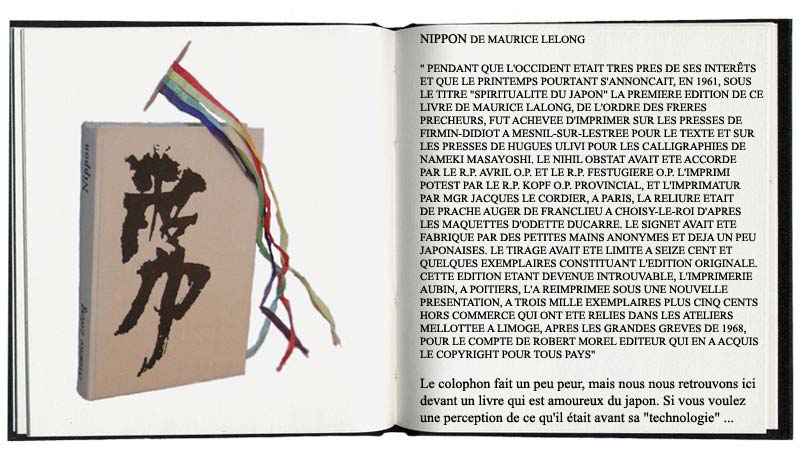 Nippon
Maurice Lelong
NIPPON DE MAURICE LELONG
" PENDANT QUE L'OCCIDENT ETAIT TRES PRES DE SES INTERÊTS
ET QUE LE PRINTEMPS POURTANT S'ANNONCAIT, EN 1961, SOUS
LE TITRE "SPIRITUALITE DU JAPON" LA PREMIERE EDITION DE CE
LIVRE DE MAURICE LALONG, DE L'ORDRE DES FRERES
PRECHEURS, FUT ACHEVEE D'IMPRIMER SUR LES PRESSES DE
FIRMIN-DIDIOT A MESNIL-SUR-LESTREE POUR LE TEXTE ET SUR
LES PRESSES DE HUGUES ULIVI POUR LES CALLIGRAPHIES DE
NAMEKI MASAYOSHI. LE NIHIL OBSTAT AVAIT ETE ACCORDE
PAR LE R.P. AVRIL O.P. ET LE R.P. FESTUGIERE O.P. L'IMPRIMI
POTEST PAR LE R.P. KOPF O.P. PROVINCIAL, ET L'IMPRIMATUR
PAR MGR JACQUES LE CORDIER, A PARIS, LA RELIURE ETAIT
DE PRACHE AUGER DE FRANCLIEU A CHOISY-LE-ROI D'APRES
LES MAQUETTES D'ODETTE DUCARRE. LE SIGNET AVAIT ETE
FABRIQUE PAR DES PETITES MAINS ANONYMES ET DEJA UN PEU
JAPONAISES. LE TIRAGE AVAIT ETE LIMITE A SEIZE CENT ET
QUELQUES EXEMPLAIRES CONSTITUANT L'EDITION ORIGINALE.
CETTE EDITION ETANT DEVENUE INTROUVABLE, L'IMPRIMERIE
AUBIN, A POITIERS, L'A REIMPRIMEE SOUS UNE NOUVELLE
PRESENTATION, A TROIS MILLE EXEMPLAIRES PLUS CINQ CENTS
HORS COMMERCE QUI ONT ETE RELIES DANS LES ATELIERS
MELLOTTEE A LIMOGE, APRES LES GRANDES GREVES DE 1968,
POUR LE COMPTE DE ROBERT MOREL EDITEUR QUI EN A ACQUIS
LE COPYRIGHT POUR TOUS PAYS"
Le colophon fait un peu peur, mais nous nous retrouvons ici
devant un livre qui est amoureux du japon. Si vous voulez
une perception de ce qu'il était avant sa "technologie" ...